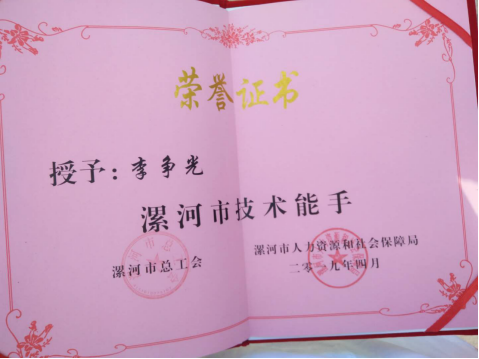 荣誉证书
授予：李争光
漯河市技术能手
漯河市总工会 漯河市人力资源和社会保障局
二零一九年四月